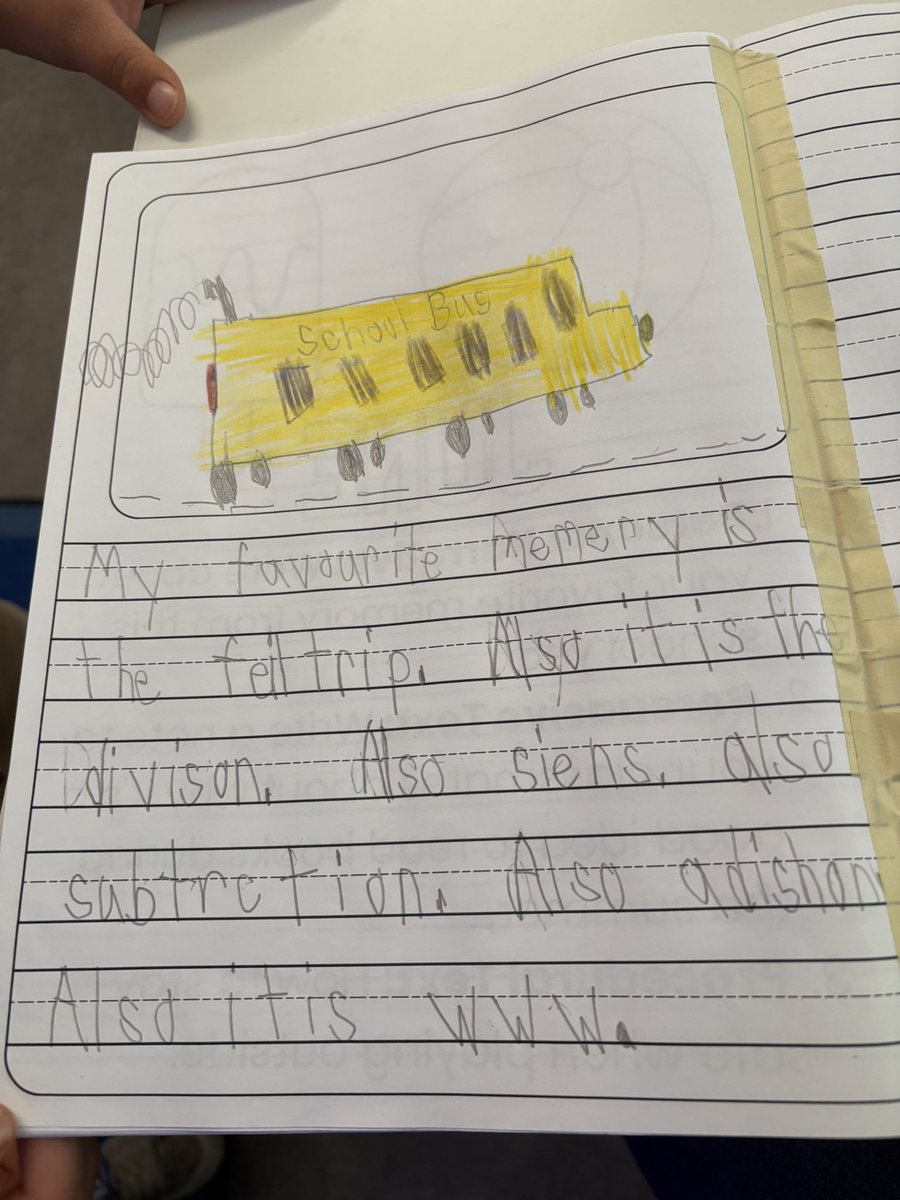 School Bus
My favourite memery is
the feil trip. Also it is the
divison. Also siens. also
subtrction. Also adishan
Also it is w w w.